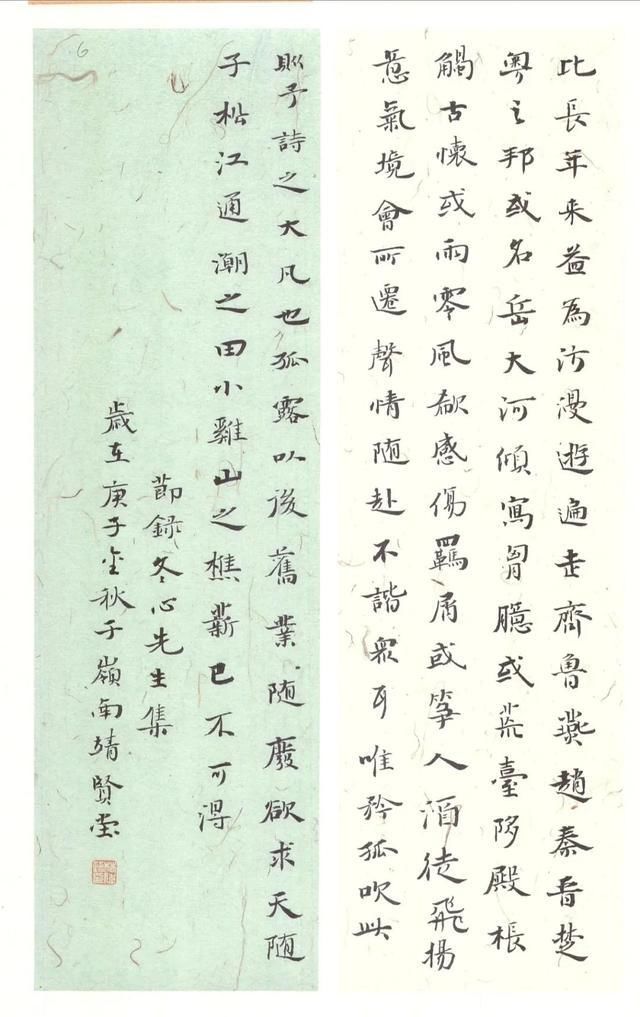 比長年来益為汗漫遊遍走齊魯燕趙秦晉楚
粵之邦或名岳大河傾寫胷臆或荒臺陊殿棖
觸古懷或雨零風欷感傷羈屑或箏人酒徒飛揚
意氣境會所遷聲情随赴不諧眾耳唯矜孤吹此
予詩之大凡也孤露以後舊業随廢欲求天随
子松江通潮之田小雞山之樵薪已不可得
節録冬心先生集
歲在庚子金秋于嶺南靖賢堂